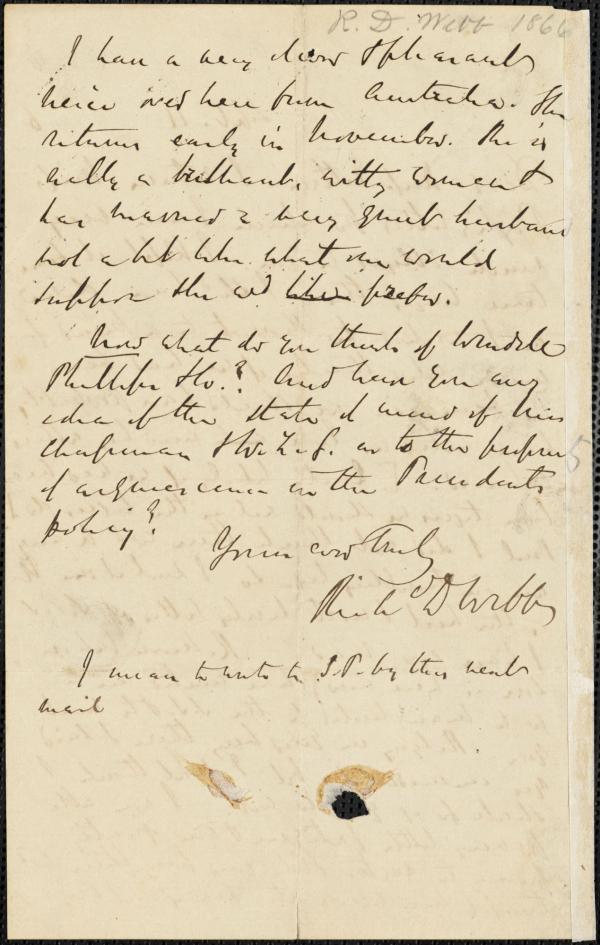 R. D. Webb 1866
I have a very dear & pleasant
neice over here from Australia. She
returns early in November. She is
really a brilliant, witty woman &
has married a very quiet husband
not a bit like what one would
suppose she would prefer.
Now what do you think of Wendell
Phillips &c.? And have you any
idea of the state of mind of Mrs
Chapman & W. L. G. as to the
of acquiescence in the Presidents
policy?
Yours ever truly
Richd D Webb
I mean to write to S.P. by the next
mail